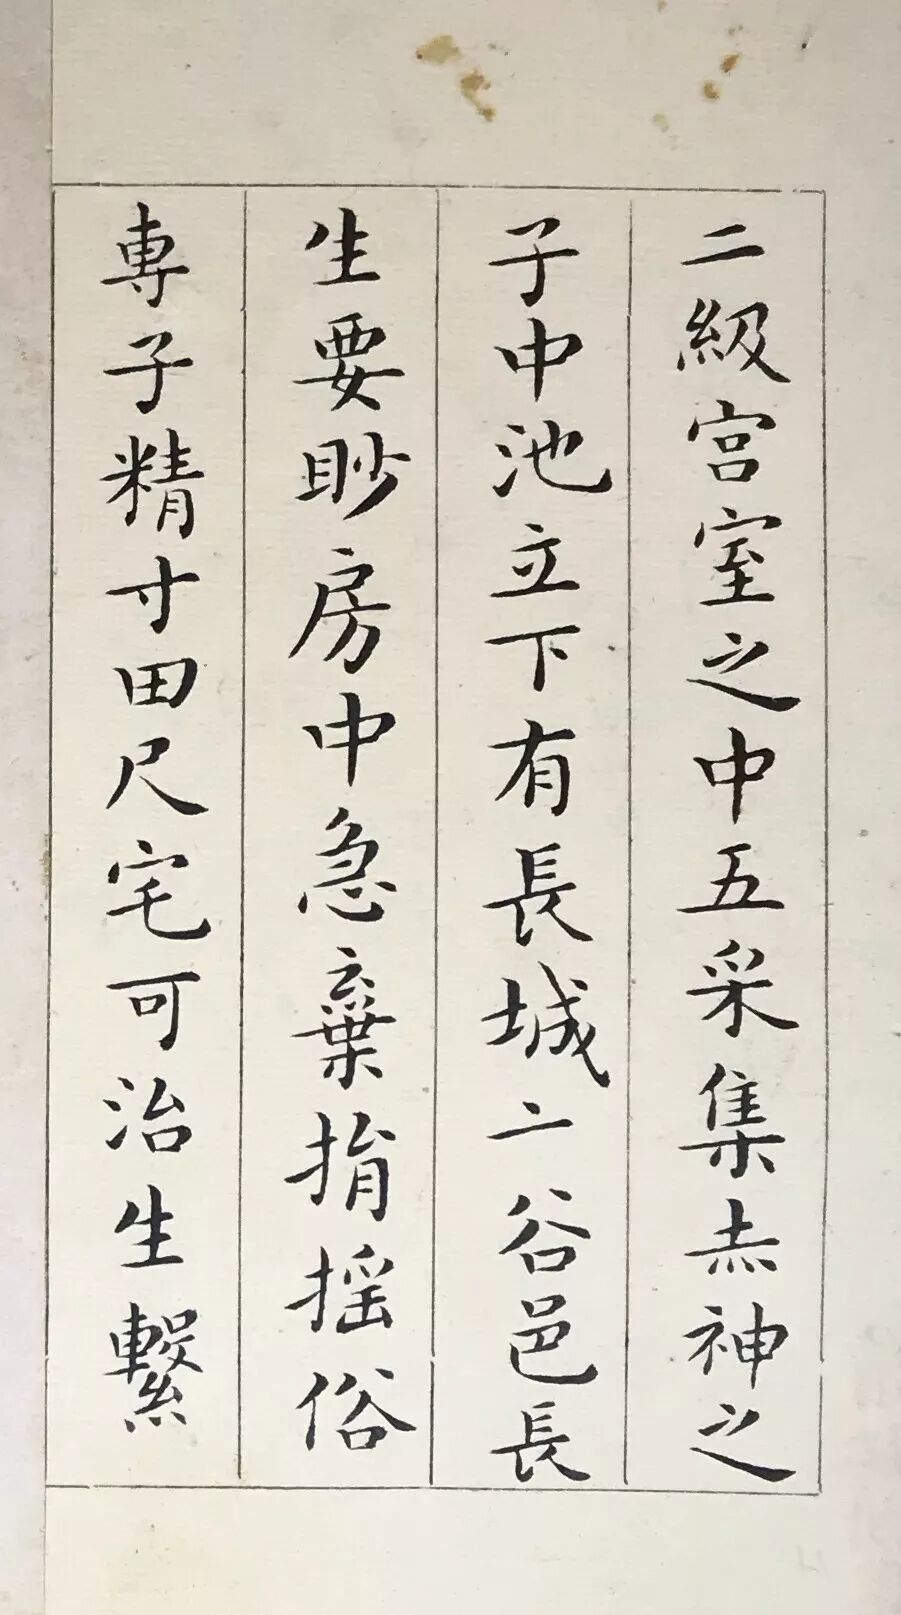 二級宮室之中五采集赤神之
子中池立下有長城二谷邑長
生要眇房中急棄捐搖俗
專子精寸田尺宅可治生繫